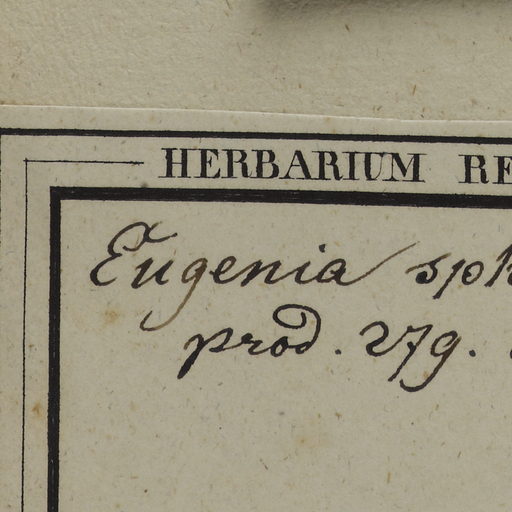 HERBARIUM RE
Eugenia sph
prod. 279.